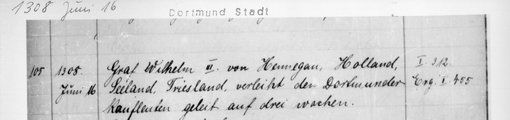 1308 Juni 16
Dortmund Stadt
105 1308. Graf Wilhelm III. von Hennegau, Holland, I 312.
Juni 16 Seeland, Friesland, verleiht den Dortmunder Erg. I. 455
Kaufleuten geleit auf drei wochen.